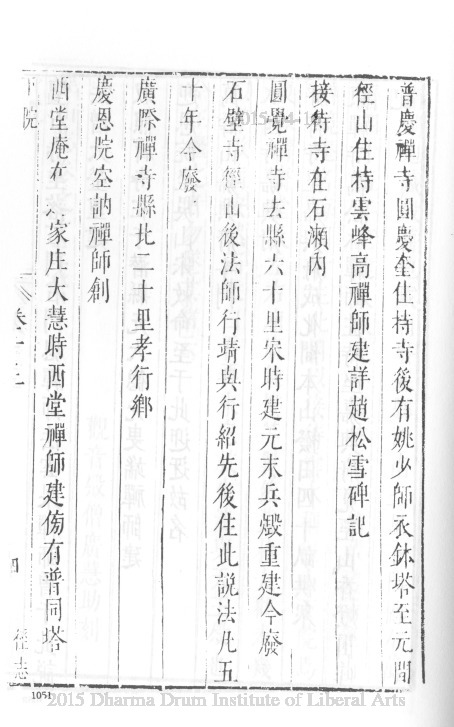 普慶禪寺圓慶奎住持寺後有姚少師衣鉢塔至元間
徑山住持雲峰高禪師建詳趙松雪碑記
接待寺在石瀨內
圓覺禪寺去縣六十里宋時建元末兵燬重建今廢
石壁寺徑山後法師行靖與行紹先後住此說法凡五
十年今廢
廣際禪寺縣北二十里孝行鄉
慶恩院空訥禪師創
西堂庵在家庄大慧時西堂禪師建傍有普同塔
下院
卷十三
四
徑志
1051
2015 Dharma Drum Institute of Liberal Arts